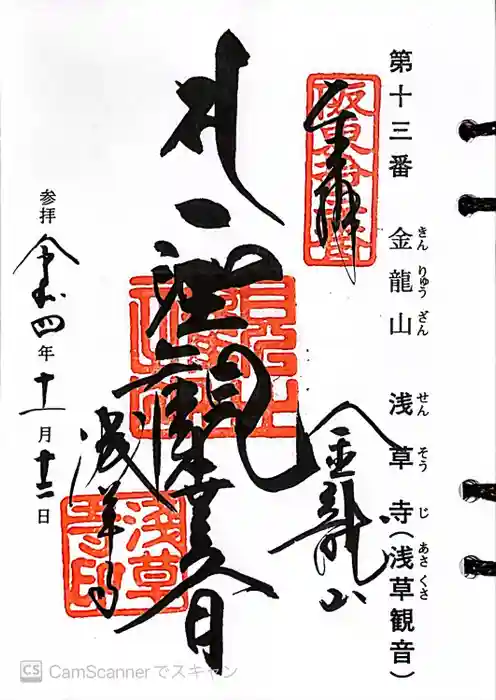 第十三番 金龍山 浅草寺(浅草観音)
きん りゅう ざん せん そう じ あさ くさ
奉拝
金龍山
聖観世音
浅草寺
浅草寺印
参拝 令和四年十一月十二日
CS CamScannerでスキャン